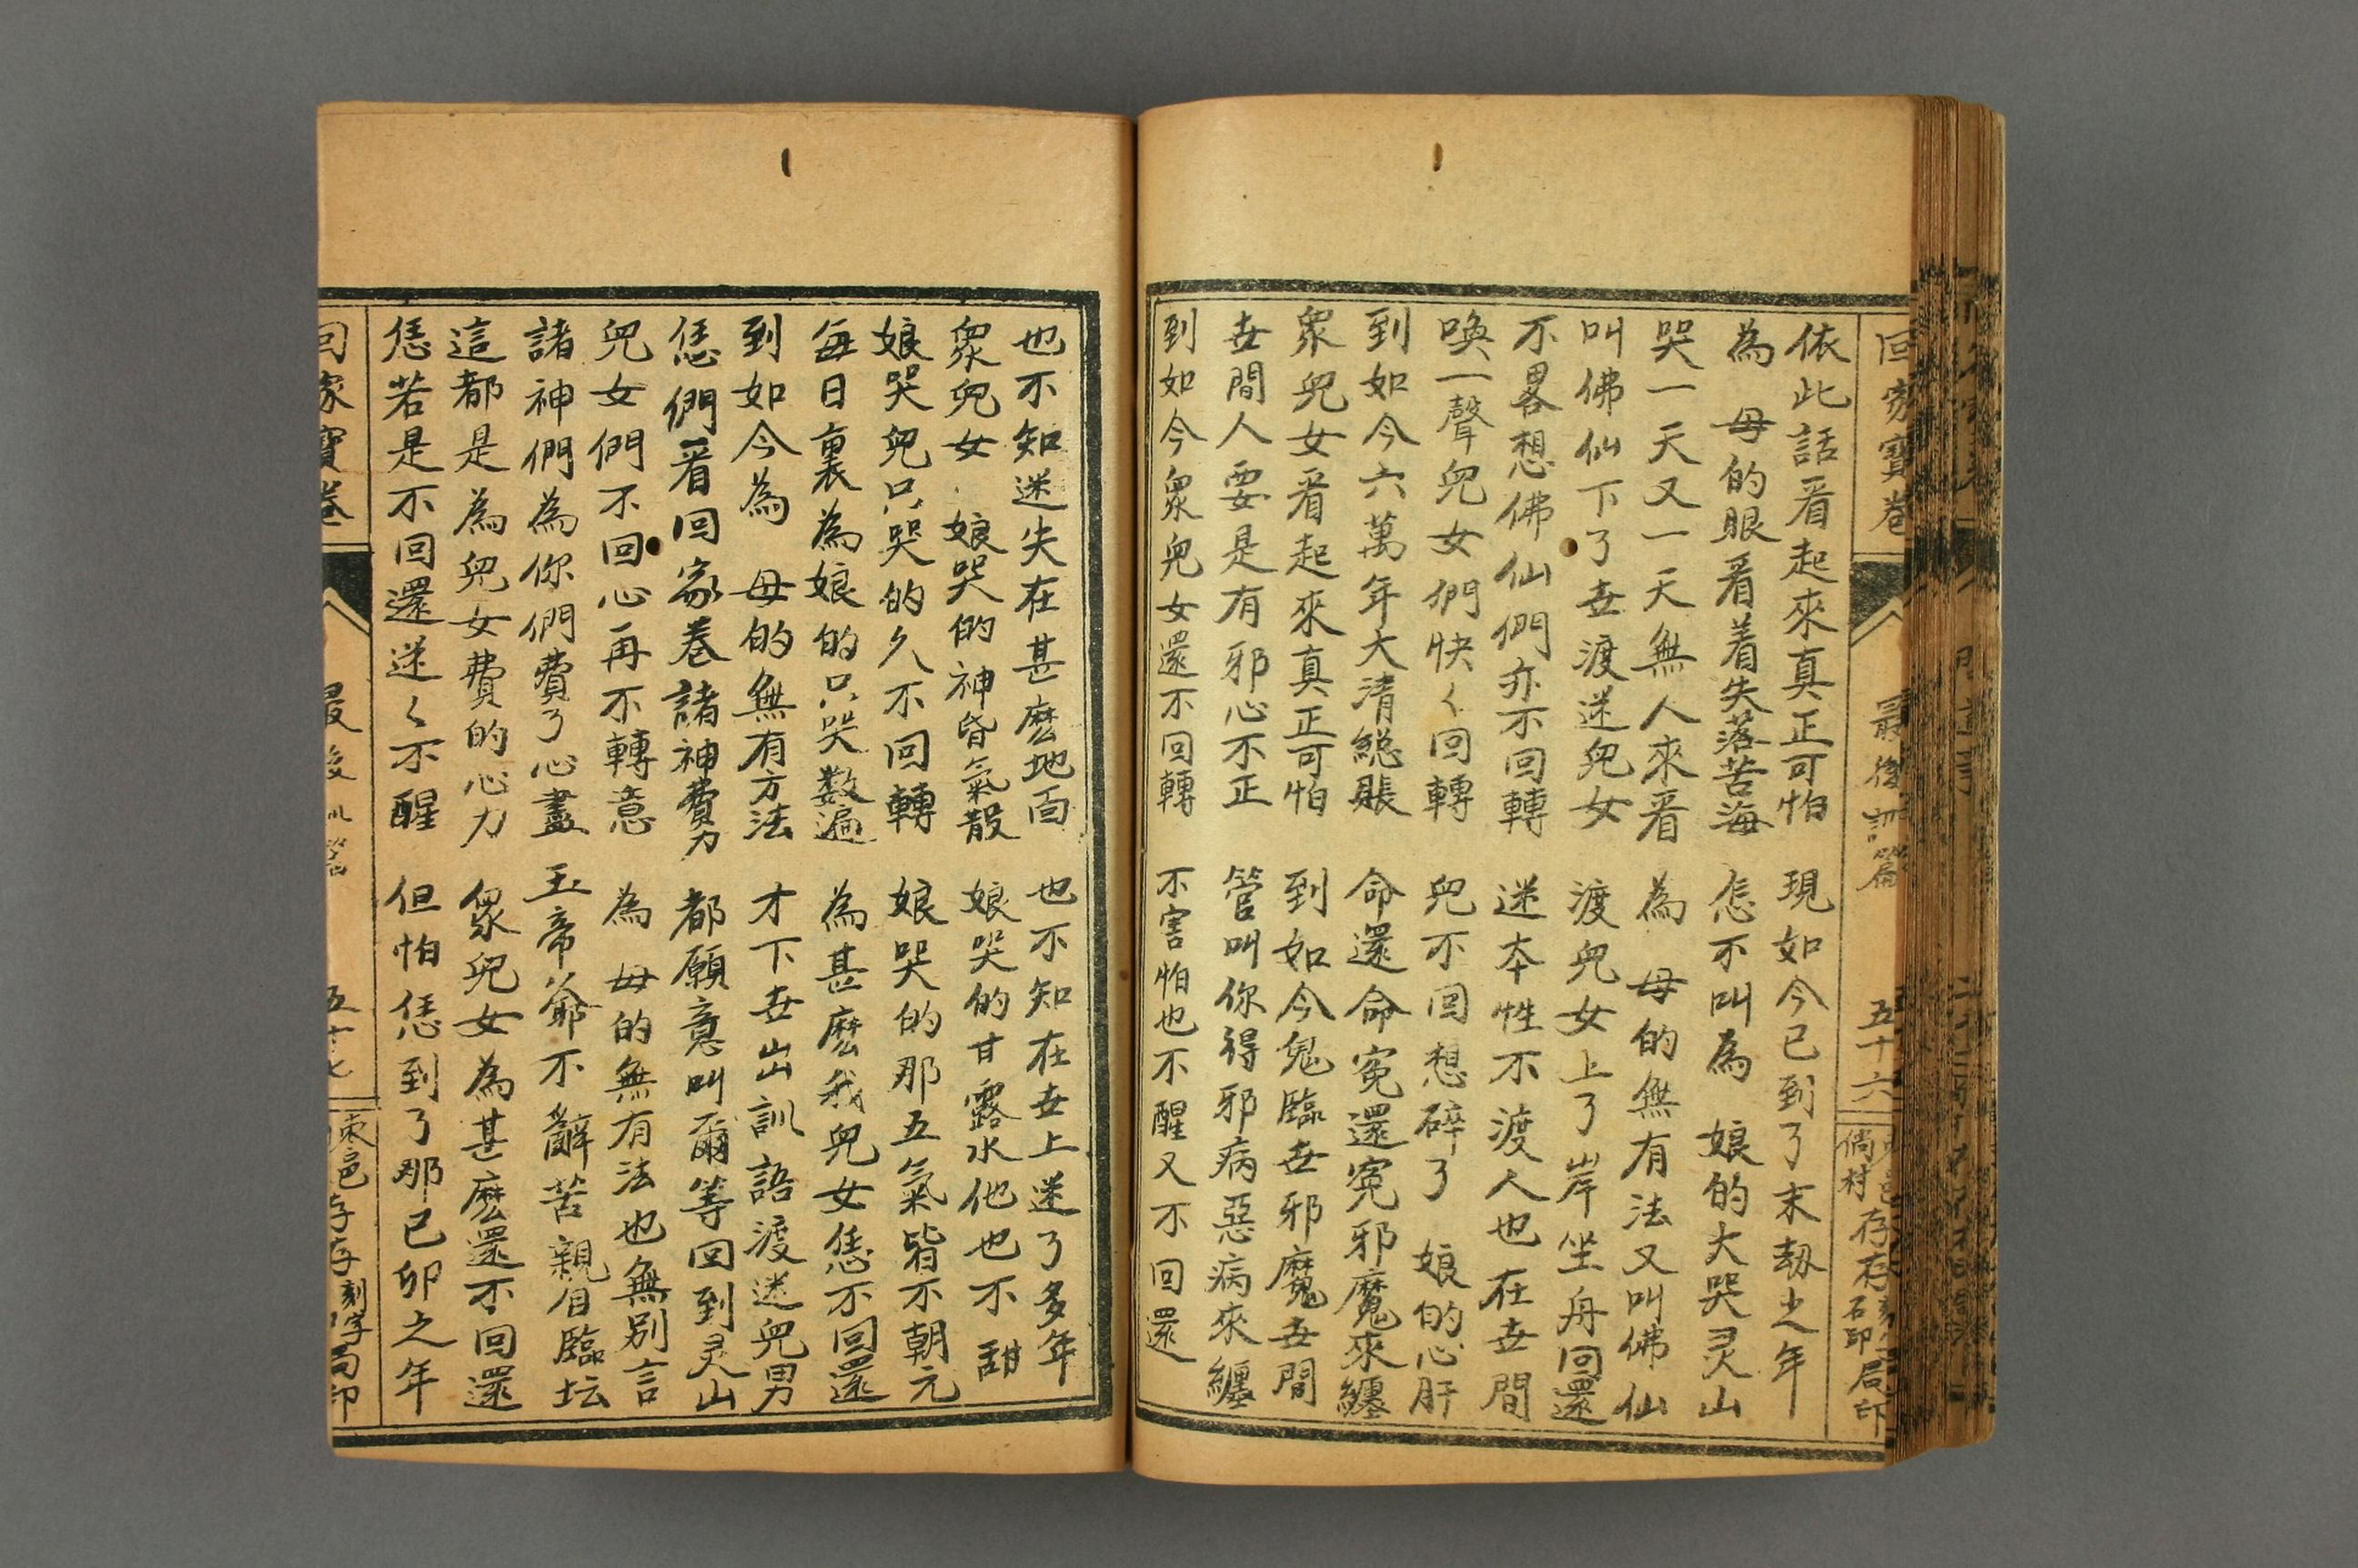 回家寶卷 最後訓篇 五十六 倘村 存存 石印局印
依此話看起來真正可怕 現如今已到了末劫之年
為 母的眼看着失落苦海 怎不叫為 娘的大哭灵山
哭一天又一天無人來看 為 母的無有法又叫佛仙
叫佛仙下了世渡迷兒女 渡兒女上了岸坐舟回還
不畧想佛仙們亦不回轉 迷本性不渡人也在世間
喚一聲兒女們快〱回轉 兒不回想碎了 娘的心肝
到如今六萬年大清總賬 命還命寃還寃邪魔來纏
衆兒女看起來真正可怕 到如今鬼臨世邪魔世間
世間人要是有邪心不正 管叫你得邪病惡病來纏
到如今衆兒女還不回轉 不害怕也不醒又不回還
也不知迷失在甚麽地面 也不知在世上迷了多年
衆兒女 娘哭的神昏氣散 娘哭的甘露水他也不甜
娘哭兒只哭的久不回轉 娘哭的那五氣皆不朝元
每日裏為娘的只哭数遍 為甚麽我兒女恁不回還
到如今為 母的無有方法 才下世出訓語渡迷兒男
恁們看回家卷諸神費力 都願意叫爾等回到灵山
兒女們不回心再不轉意 為 母的無有法也無別言
諸神們為你們費了心盡 玉帝爺不辭苦親自臨坛
這都是為兒女費的心力 衆兒女為甚麽還不回還
恁若是不回還迷〱不醒 但怕恁到了那己卯之年
回家寶卷 最後訓篇 五十七 東邑存存刻字局印